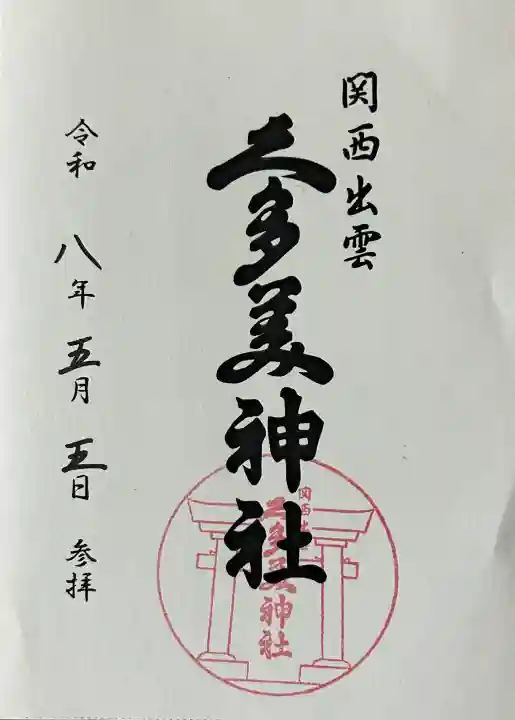 関西出雲
久多美神社
令和八年五月五日 参拝
関西出
久多美神社